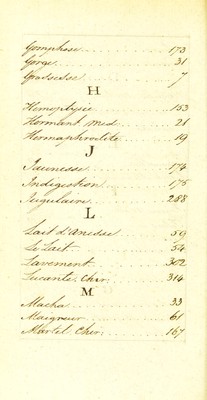 Gomphose 173
Gorge 31
Grossesse 7
H
Hemoptysie 153
Hormant Med. 21
Hermaphrodite 19
J
Jaunesse 174
Indigestion 175
Jugulaire 288
L
Lait d'anesse 50
Le Lait 54
Lavement 302
Lucante, Chir. 314
M
Macha 33
Maigreur 61
Martel Chir. 167